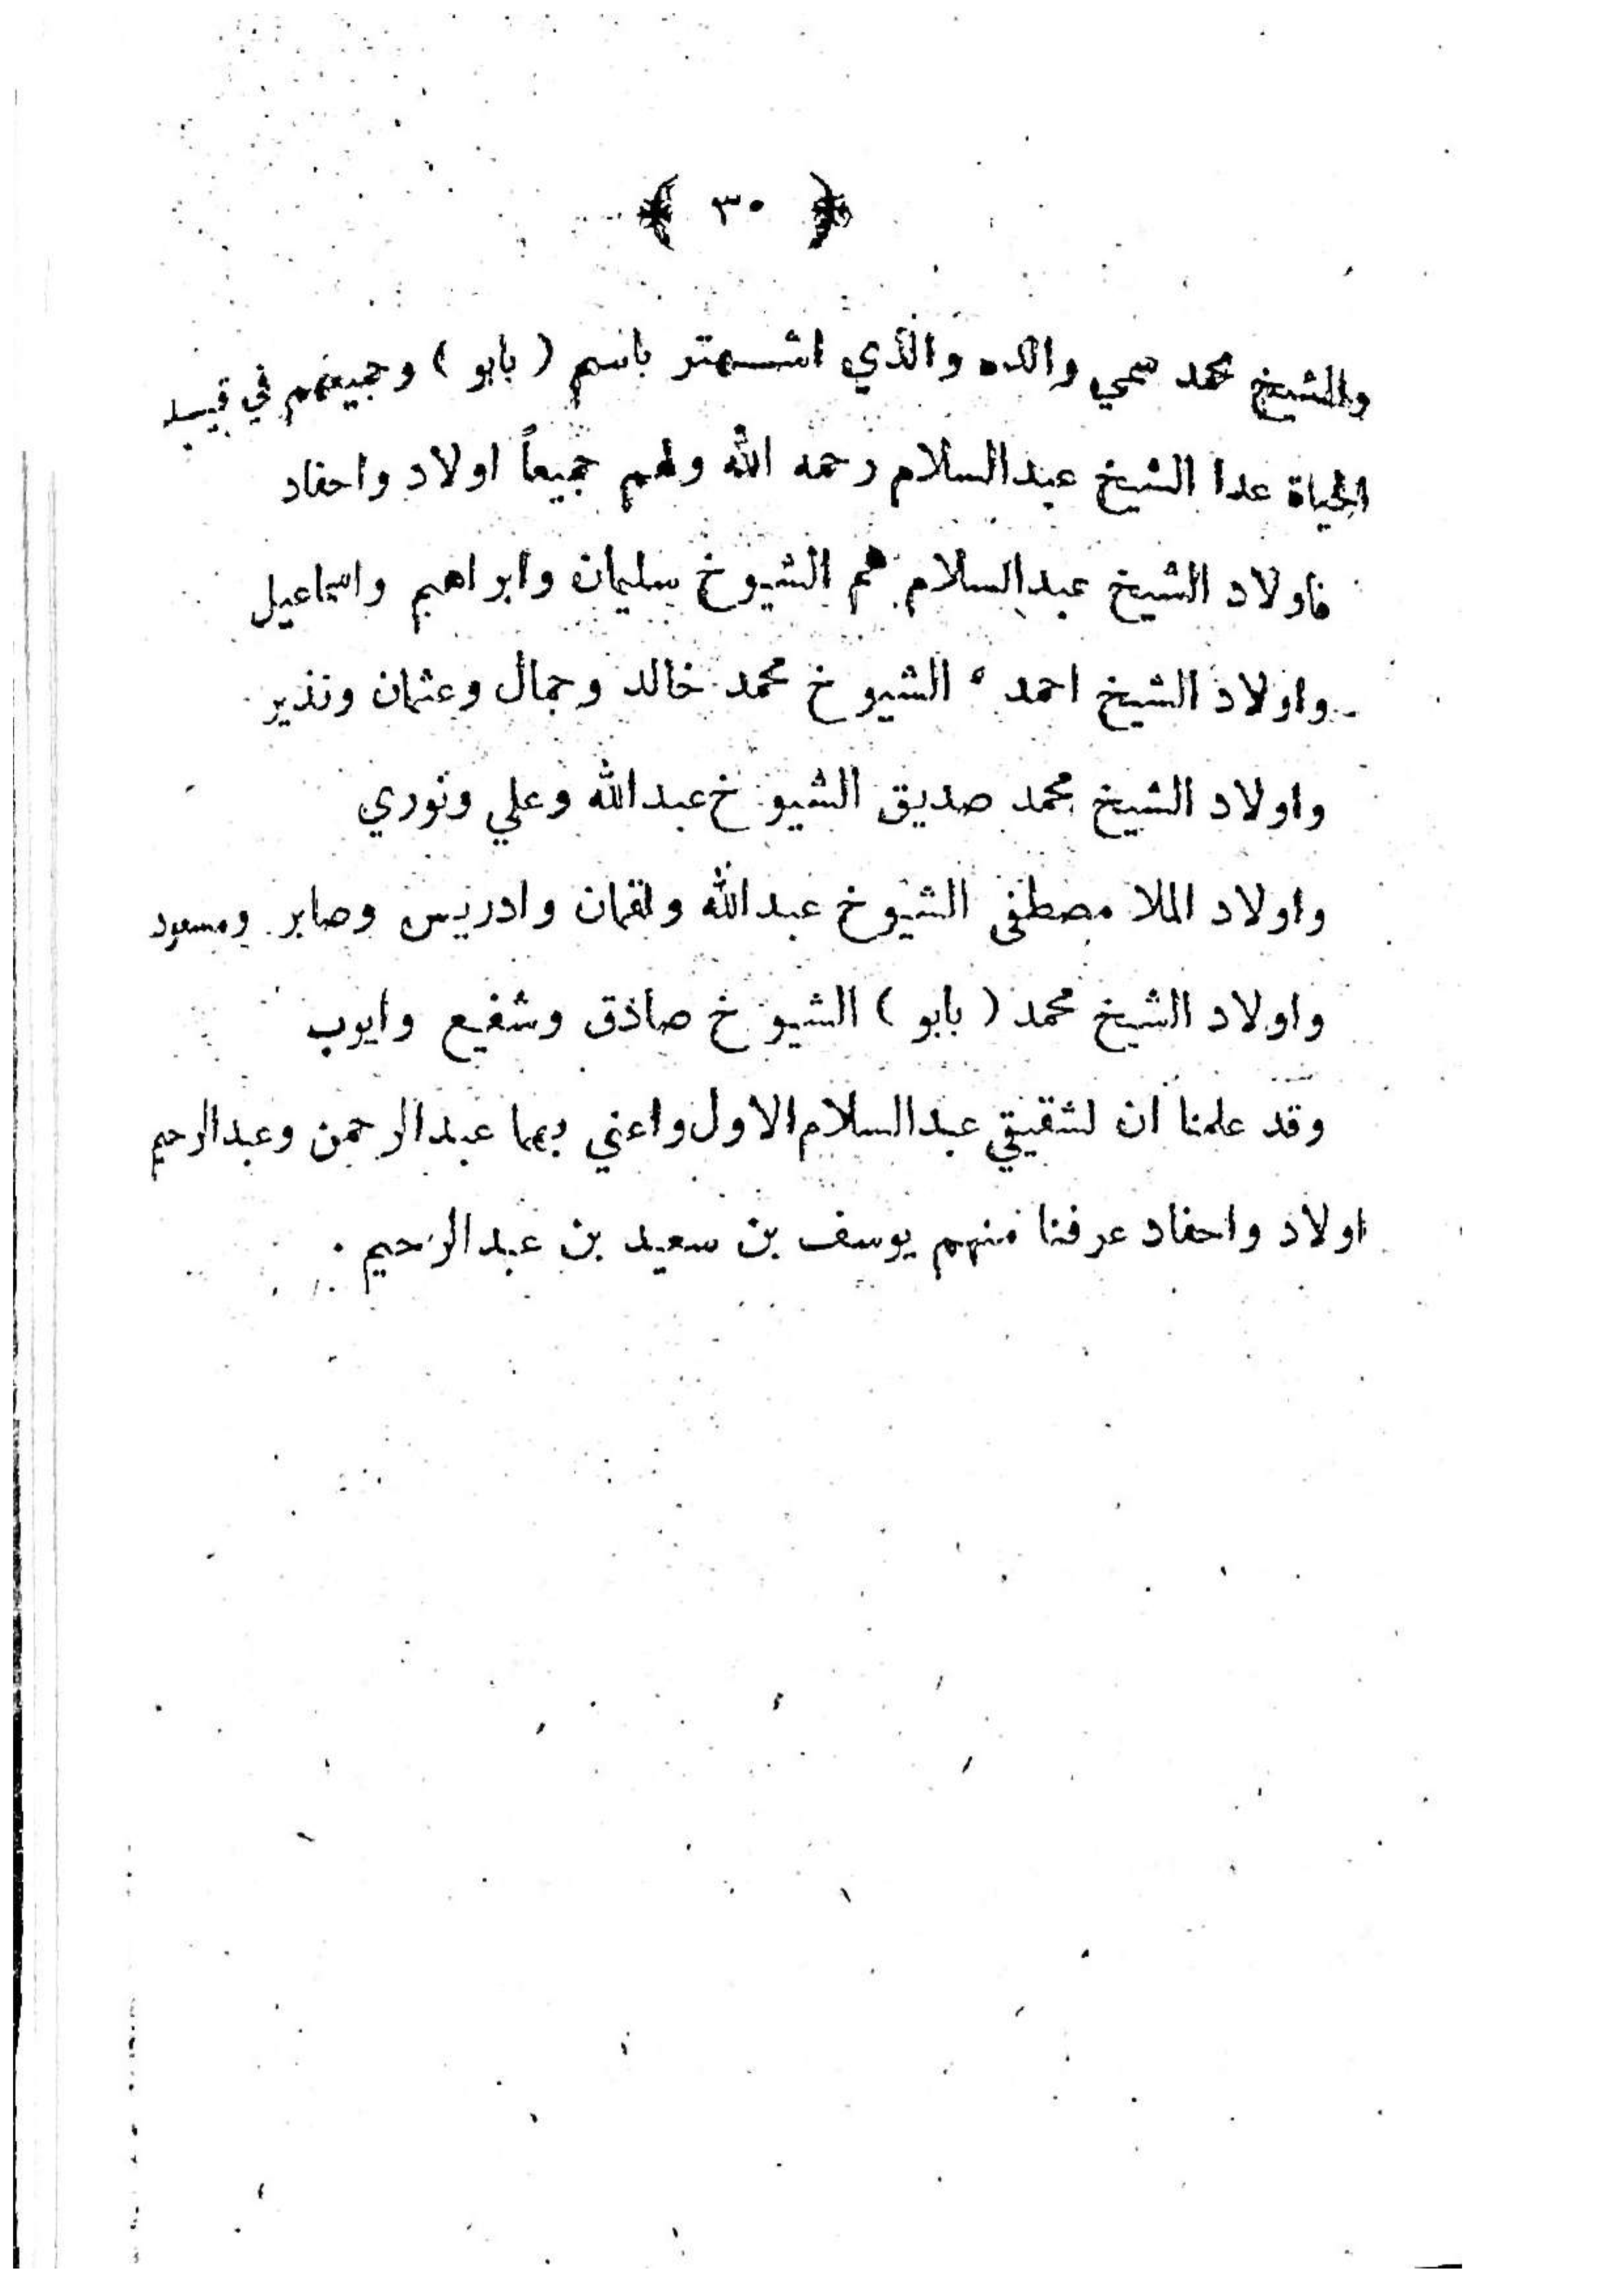 ﴿ ٣٠ ﴾
والشيخ محمد سمي والده والذي اشتهر باسم ( بابو ) وجميعهم في قيد
الحياة عدا الشيخ عبدالسلام رحمه الله ولهم جميعاً اولاد واحفاد
فاولاد الشيخ عبدالسلام هم الشيوخ سليمان وابراهيم واسماعيل
واولاد الشيخ احمد ، الشيوخ محمد خالد وجمال وعثمان ونذير
واولاد الشيخ محمد صديق الشيوخ عبدالله وعلي ونوري
واولاد الملا مصطفى الشيوخ عبدالله ولقمان وادريس وصابر ومسعود
واولاد الشيخ محمد ( بابو ) الشيوخ صادق وشفيع وايوب
وقد علمنا ان لشقيقي عبدالسلام الاول واعني بهما عبدالرحمن وعبدالرحيم
اولاد واحفاد عرفنا منهم يوسف بن سعيد بن عبدالرحيم .